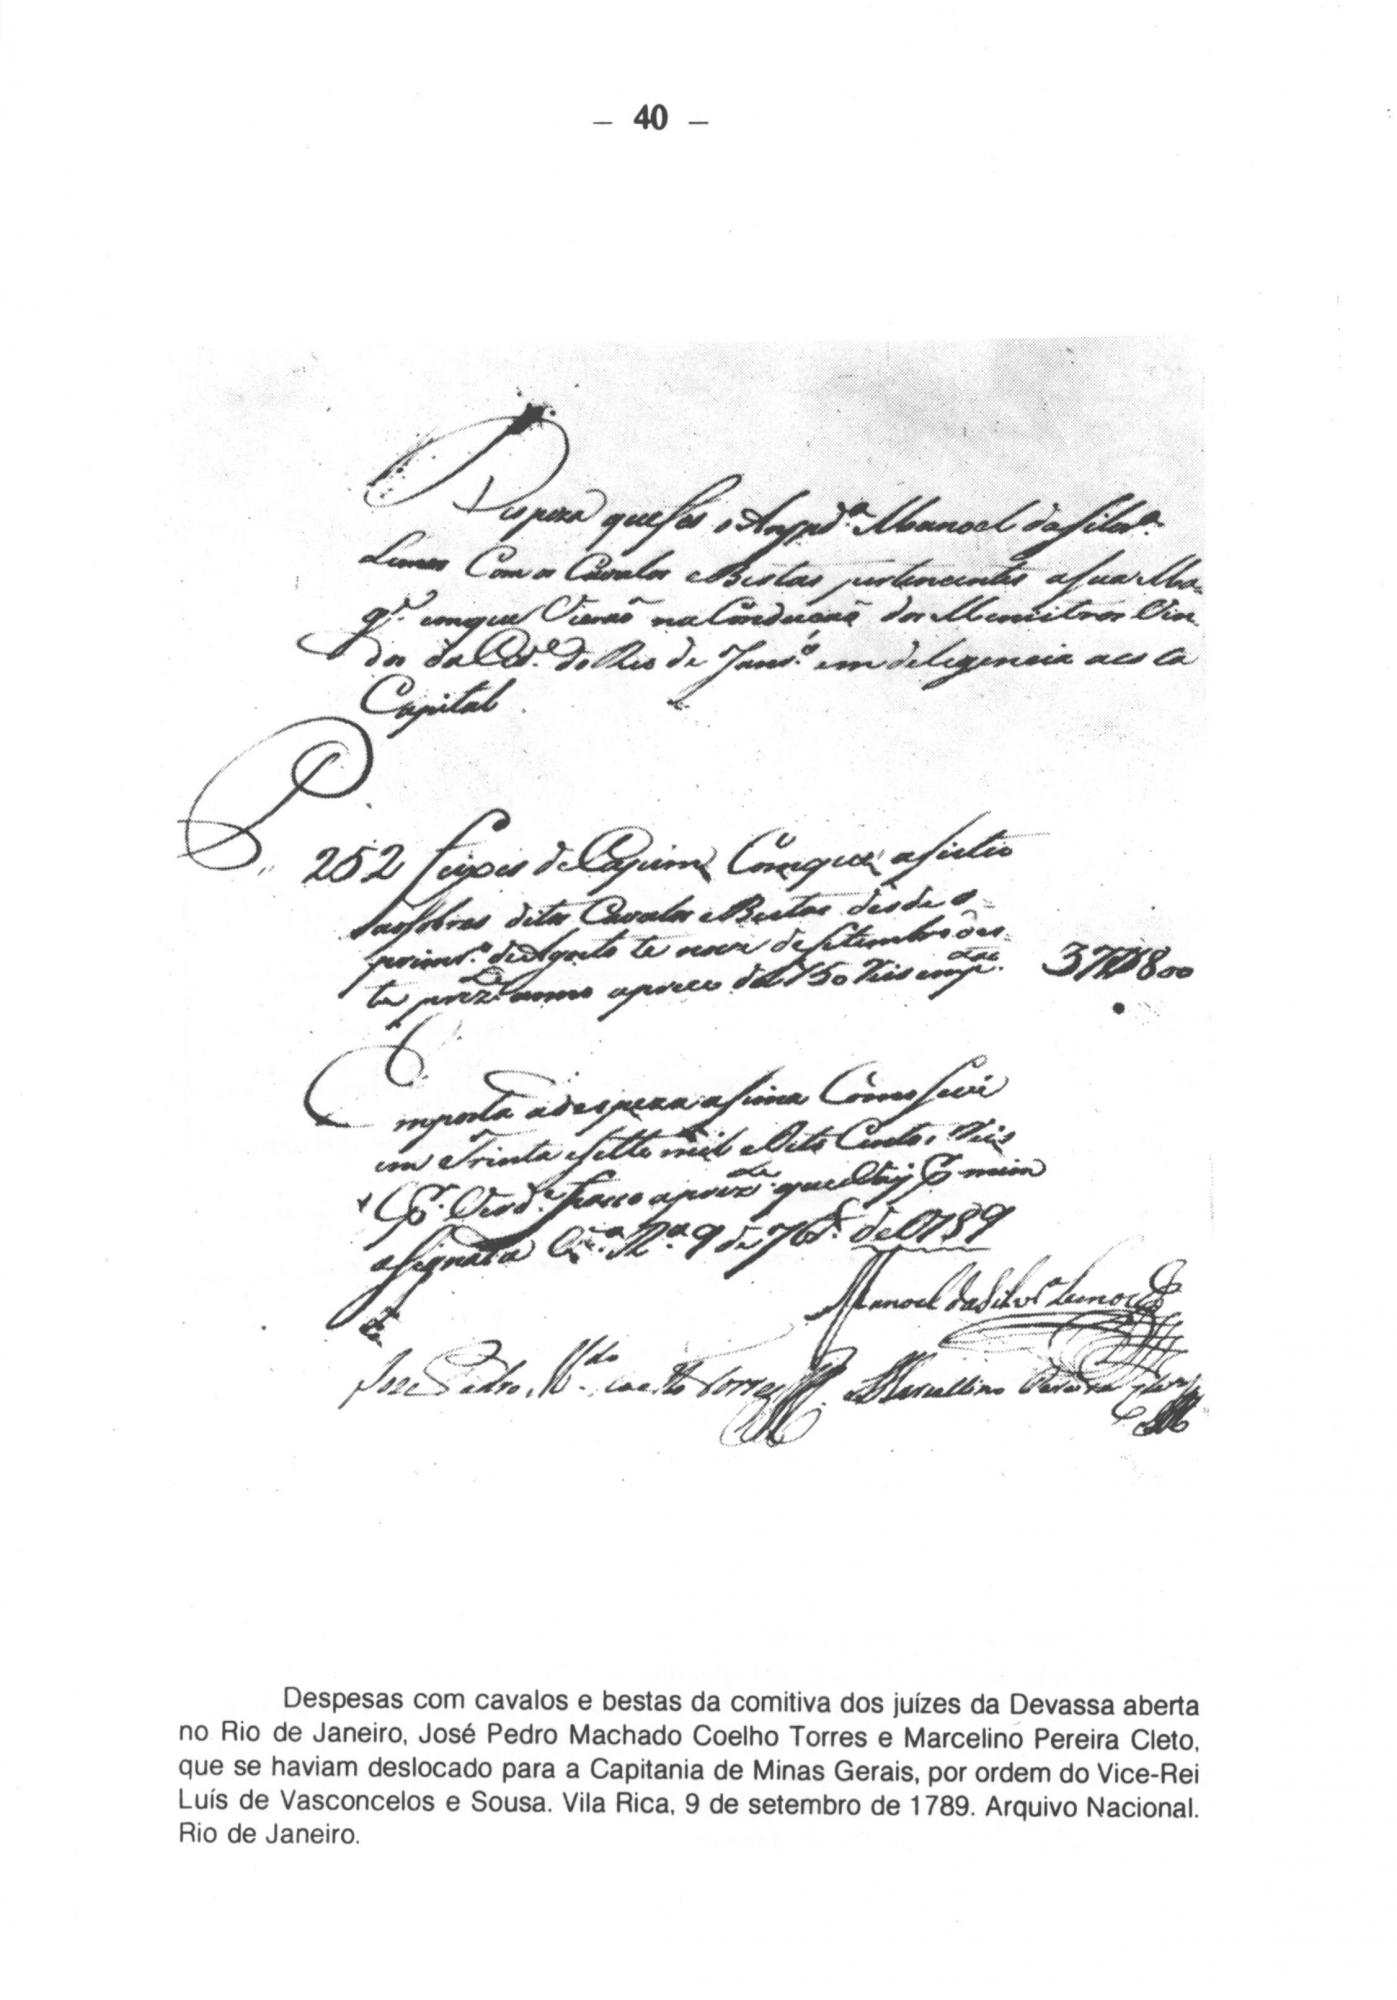 – 40 –
Despeza que fes o Manoel da Silvª
Lemos Com os Cavalos e Bestas pertencentes a sua Mag-
gᵉ. em que Vierão na Condução dos Menistros Vin-
dos da Cidᵉ. do Rio de Janrº. em deligencia a esta
Capital
P.
252 feixes de Capim Com que asistio
aos sobres ditos Cavalos e Bestas desde o
primrº. de Agosto te nove de Setembro des-
te prezᵗᵉ anno a preco de 150 reis 37$800
Emporta a despeza asima Como se vê
em Trinta e sette mil e Oito Centos reis
Pʳ. Verdᵉ. fasso a prezᵗᵉ. que vay Pʳ mim
asignada Vª. Rª 9 de 7bʳᵒ. de 1789
Manoel da Silvª Lemos
Joze Pedro Mᵈᵒ. Coelho Torres Marcellino Pereira Cleto
Despesas com cavalos e bestas da comitiva dos juízes da Devassa aberta
no Rio de Janeiro, José Pedro Machado Coelho Torres e Marcelino Pereira Cleto,
que se haviam deslocado para a Capitania de Minas Gerais, por ordem do Vice-Rei
Luís de Vasconcelos e Sousa. Vila Rica, 9 de setembro de 1789. Arquivo Nacional.
Rio de Janeiro.